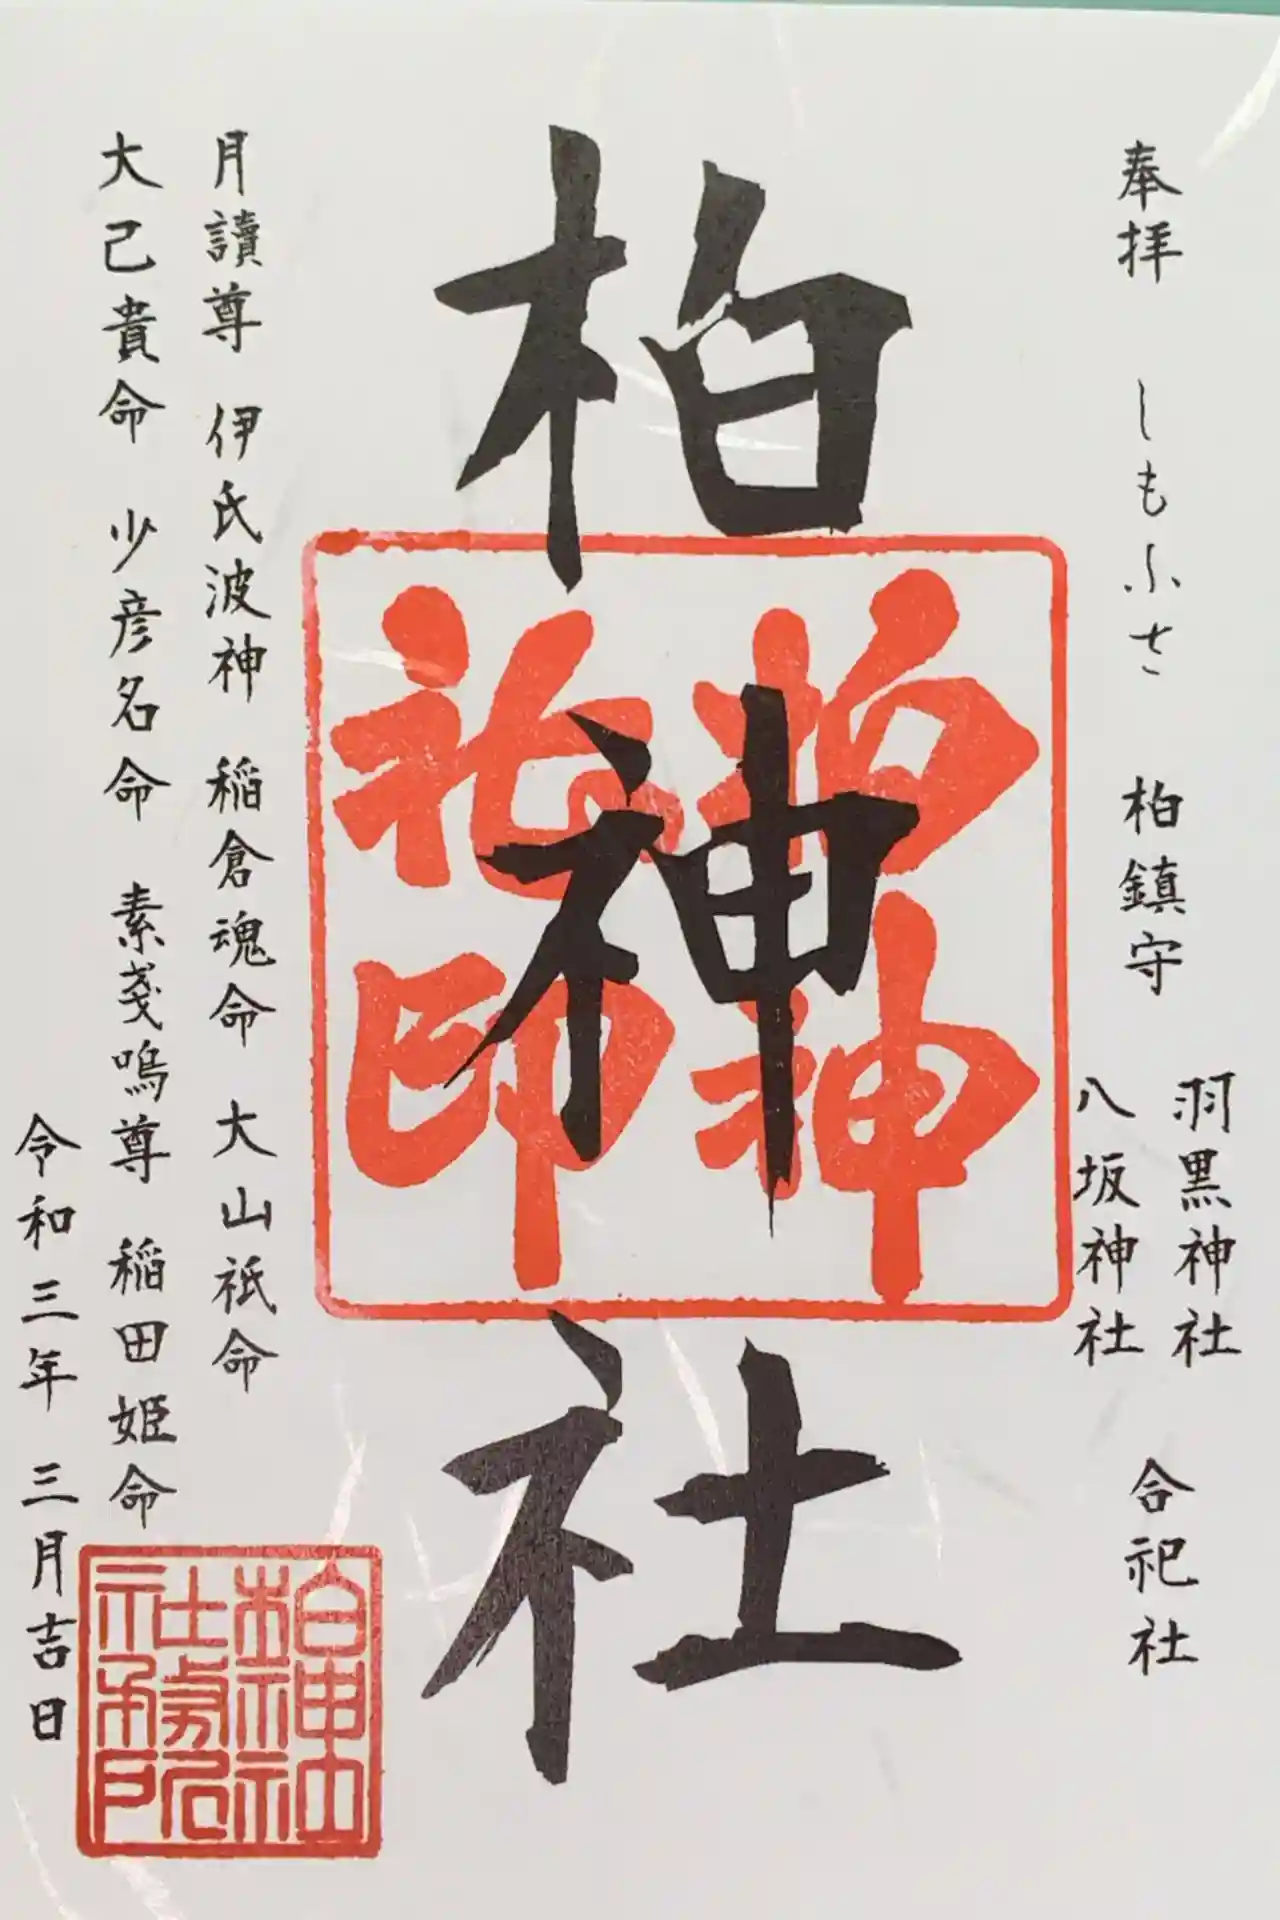 奉拝 しもふさ 柏鎮守
羽黒神社
八坂神社
合祀社
柏神社
柏神社印
月讀尊 伊氐波神 稲倉魂命 大山祇命
大己貴命 少彦名命 素戔嗚尊 稲田姫命
令和三年 三月吉日
柏神社
社務所